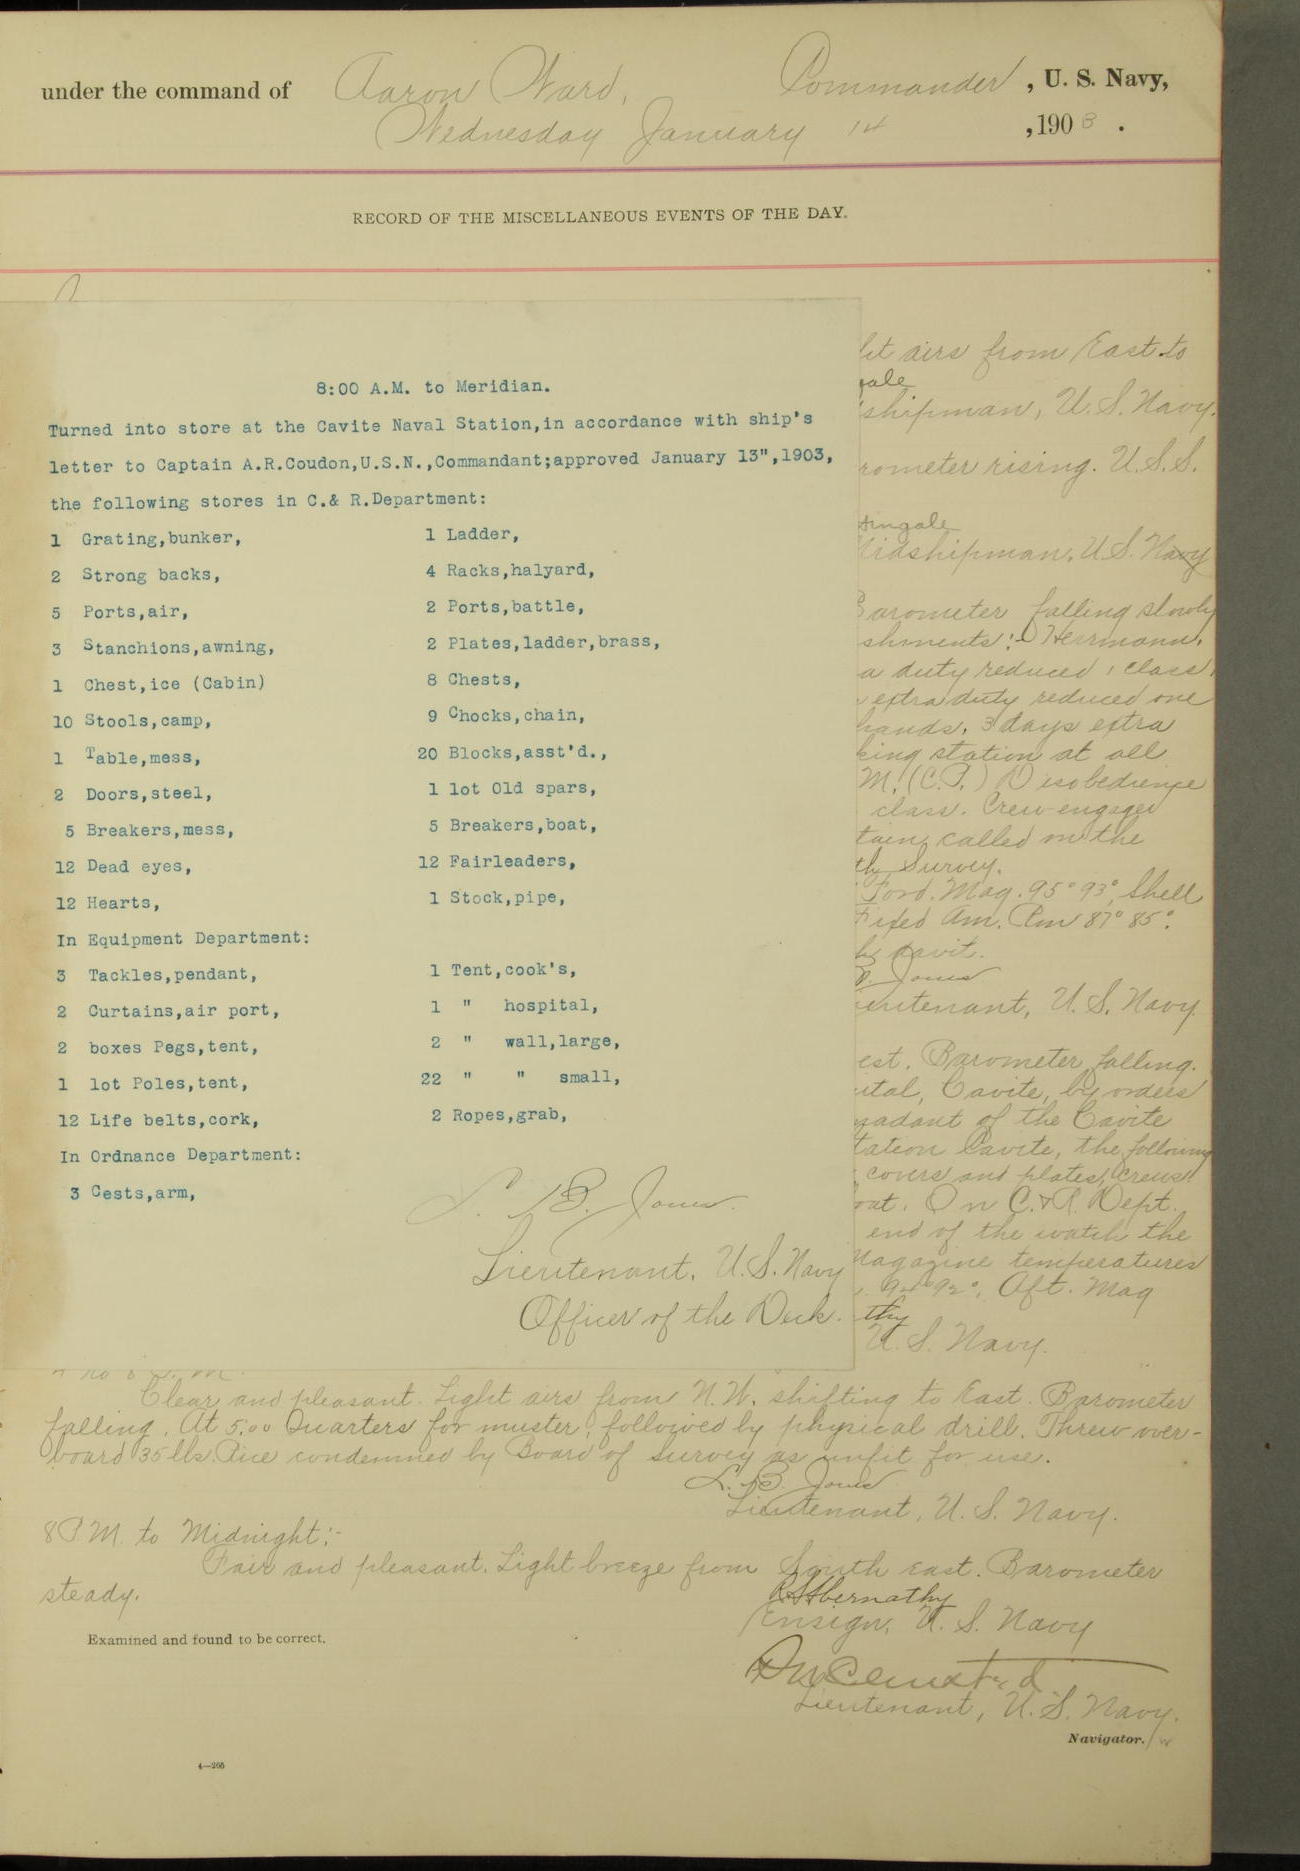 under the command of Aaron Ward, Commander, U. S. Navy,
Wednesday January 14, 1903.
RECORD OF THE MISCELLANEOUS EVENTS OF THE DAY.
8:00 A.M. to Meridian.
Turned into store at the Cavite Naval Station,in accordance with ship's
letter to Captain A.R.Coudon,U.S.N.,Commandant;approved January 13",1903,
the following stores in C.& R.Department:
1 Grating,bunker, 1 Ladder,
2 Strong backs, 4 Racks,halyard,
5 Ports,air, 2 Ports,battle,
3 Stanchions,awning, 2 Plates,ladder,brass,
1 Chest,ice (Cabin) 8 Chests,
10 Stools,camp, 9 Chocks,chain,
1 Table,mess, 20 Blocks,asst'd.,
2 Doors,steel, 1 lot Old spars,
5 Breakers,mess, 5 Breakers,boat,
12 Dead eyes, 12 Fairleaders,
12 Hearts, 1 Stock,pipe,
In Equipment Department:
3 Tackles,pendant, 1 Tent,cook's,
2 Curtains,air port, 1 " hospital,
2 boxes Pegs,tent, 2 " wall,large,
1 lot Poles,tent, 22 " " small,
12 Life belts,cork, 2 Ropes,grab,
In Ordnance Department:
3 Cests,arm,
L. B. Jones
Lieutenant. U.S. Navy
Officer of the Deck.
airs from East to
shipman, U.S. Navy.
rometer rising. U.S.S.
tingale
idshipman. U.S. Navy
Barometer falling slowly
shments:- Herrmann,
a duty reduced 1 class,
extra duty reduced one
hands, 3 days extra
king station at all
M. (C.P.) Disobedience
class. Crew engaged
tain called on the
th Survey.
Ford. Mag. 95° 93°, Shell
Fixed Am. Rm 87° 85°.
Jones
ieutenant, U.S. Navy.
est. Barometer falling.
ital, Cavite, by orders
madant of the Cavite
tation Cavite, the following
covers and plates, Crews
oat. In C.&R. Dept.
end of the watch the
Magazine temperatures
94° 92°, Aft. Mag
thy
U.S. Navy.
Clear and pleasant. Light airs from N.W. shifting to East. Barometer
falling. At 5.00 Quarters for muster, followed by physical drill. Threw over-
board 35 lbs. Rice condemned by Board of Survey as unfit for use.
L. B. Jones
Lieutenant, U.S. Navy.
8 P.M. to Midnight:-
Fair and pleasant. Light breeze from South east. Barometer
steady.
R.S. Abernathy
Ensign, U.S. Navy
Examined and found to be correct.
Lieutenant, U.S. Navy.
Navigator.
4—205